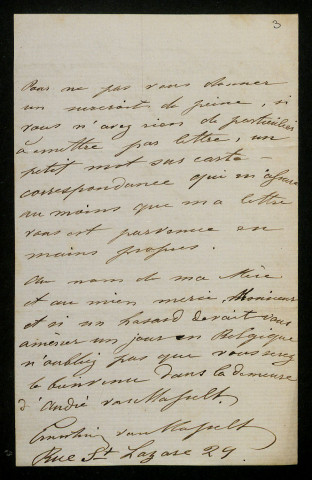 3
Pour ne pas vous donner
un surcroît de peine, si
vous n'avez rien de particulier
à émettre par lettre, un
petit mot sur carte-
correspondance qui m'assure
au moins que ma lettre
vous est parvenue en
mains propres.
Au nom de ma Mère
et au mien merci, Monsieur
et si un hasard devait vous
amener un jour en Belgique
n'oubliez pas que vous serez
le bienvenu dans la demeure
d'André van Hasselt.
van Hasselt
Rue St Lazare 29.